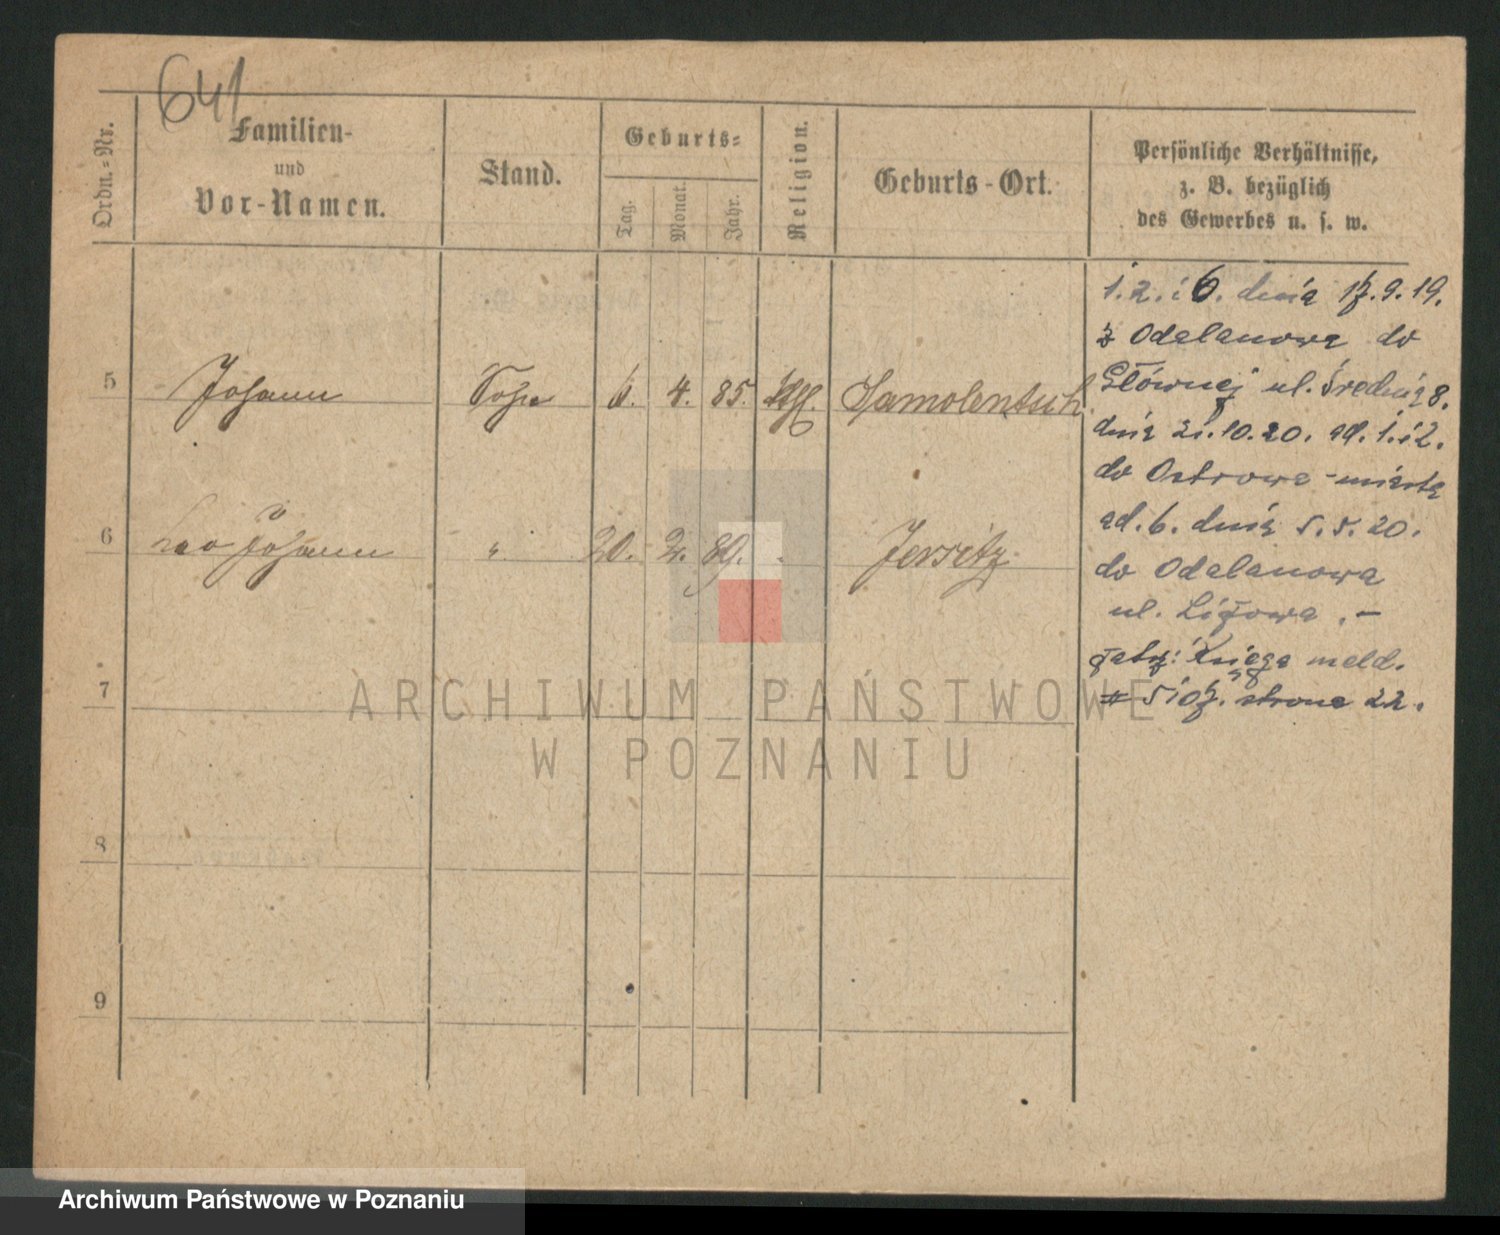 641
Ordn.-Nr.
Familien-
und
Vor-Namen.
Stand.
Geburts-
Tag.
Monat.
Jahr.
Religion.
Geburts-Ort.
Persönliche Verhältnisse,
z. B. bezüglich
des Gewerbes u. s. w.
5 Johann Sohn 6. 4. 85. kth. Samolentsch
6 Leo Johann " 20. 2. 89. Jersitz
7
8
9
1. 2. i 6. dnia 17.9.19.
z Odolanowa do
Głównej ul. Średnia 8.
dnia 21.10.20. ad. 1. i 2.
do Ostrowa-miasta
ad. 6. dnia 5.5.20.
do Odolanowa
ul. .-
Księga meld.
strona 22.
ARCHIWUM PAŃSTWOWE
W POZNANIU
Archiwum Państwowe w Poznaniu